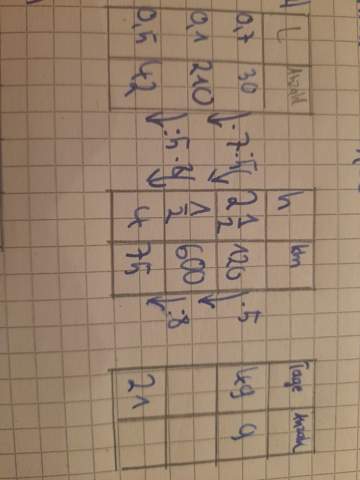 L Anzahl
0,7 30
·7
0,1 210
:5
0,5 42
h km
2 1/2 120
:5 ·5
1/2 600
·8 :8
4 75
Tage Anzahl
49 9
21